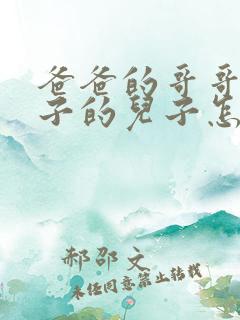 爸爸的哥哥
子的兒子怎
郝邵文
未经同意禁止转载